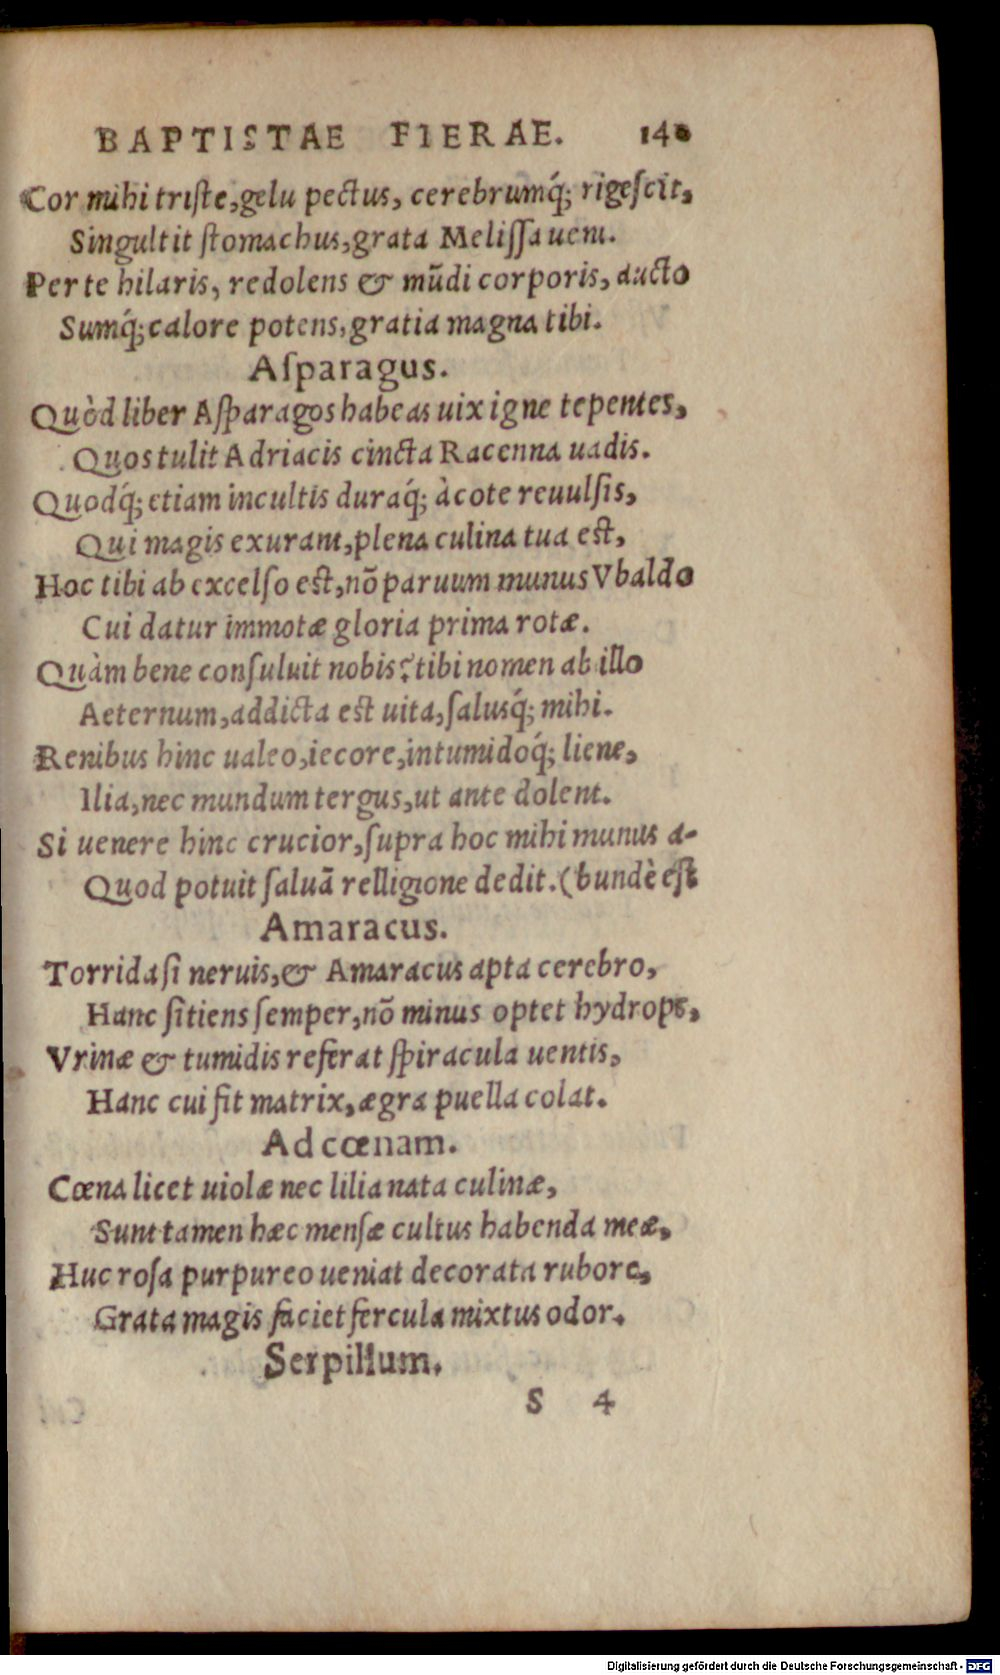 BAPTISTAE FIERAE. 140
Cor mihi triſte, gelu pectus, cerebrumq́; rigeſcit,
Singultit ſtomachus, grata Meliſſa ueni.
Per te hilaris, redolens & mũdi corporis, aucto
Sumq́; calore potens, gratia magna tibi.
Aſparagus.
Quòd liber Aſparagos habeas uix igne tepentes,
Quos tulit Adriacis cincta Racenna uadis.
Quodq́; etiam incultis duraq́; à cote reuulſis,
Qui magis exurant, plena culina tua est,
Hoc tibi ab excelſo est, nõ paruum munus Vbaldo
Cui datur immotæ gloria prima rotæ.
Quàm bene conſuluit nobis? tibi nomen ab illo
Aeternum, addicta est uita, ſalusq́; mihi.
Renibus hinc ualeo, iecore, intumidoq́; liene,
Ilia, nec mundum tergus, ut ante dolent.
Si uenere hinc crucior, ſupra hoc mihi munus a-
Quod potuit ſaluã relligione dedit. (bundè eſt
Amaracus.
Torrida ſi neruis, & Amaracus apta cerebro,
Hanc ſitiens ſemper, nõ minus optet hydrops,
Vrinæ & tumidis referat ſpiracula uentis,
Hanc cui fit matrix, ægra puella colat.
Ad cœnam.
Cœna licet uiolæ nec lilia nata culinæ,
Sunt tamen hæc menſæ cultus habenda meæ,
Huc roſa purpureo ueniat decorata rubore,
Grata magis faciet fercula mixtus odor.
Serpillum.
S 4
Digitalisierung gefördert durch die Deutsche Forschungsgemeinschaft - DFG